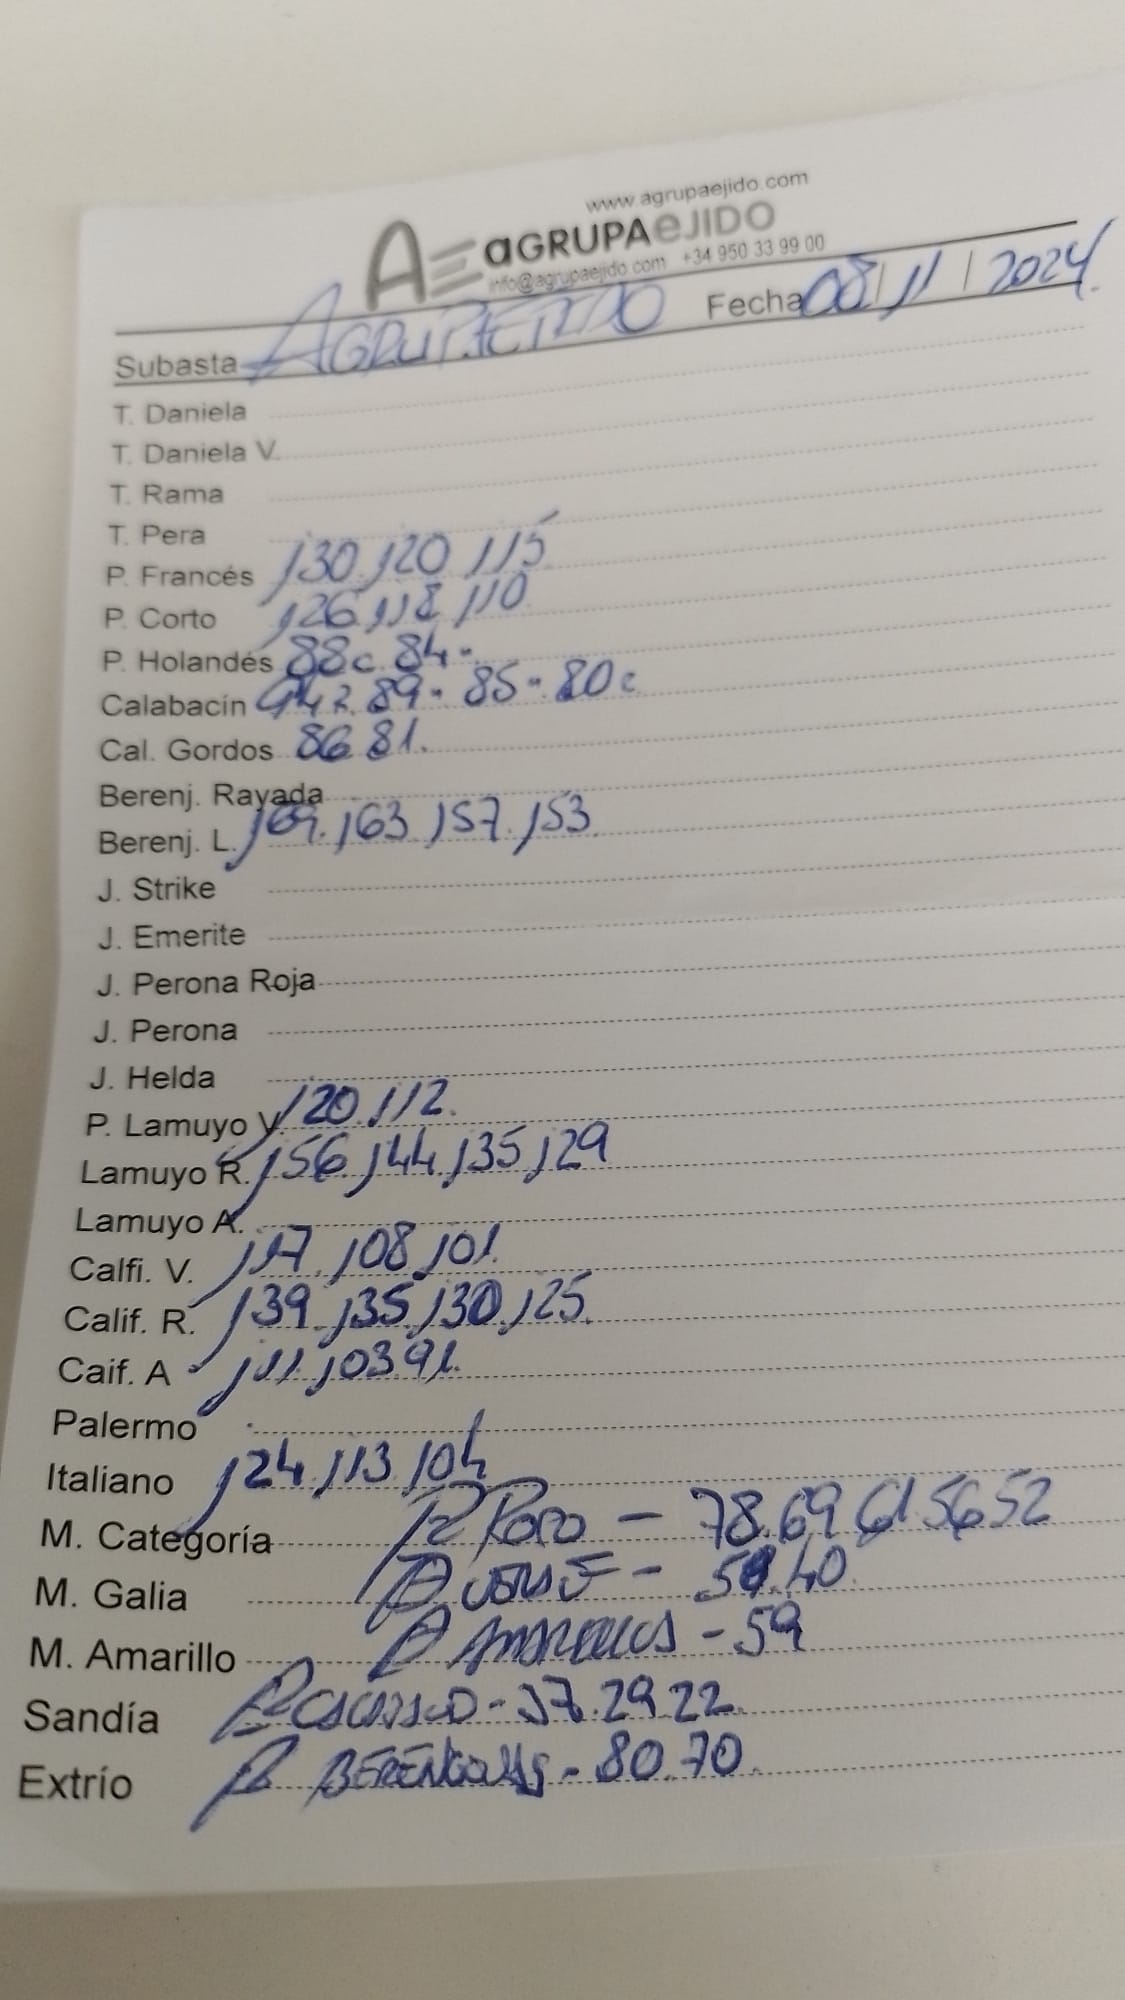 www.agrupaejido.com
AE aGRUPAeJIDO
info@agrupaejido.com +34 950 33 99 00
Subasta AGRUPAEJIDO Fecha 08/11/2024
T. Daniela
T. Daniela V.
T. Rama
T. Pera
P. Francés 130.120 115
P. Corto 126.118 110
P. Holandés 88c. 84-
Calabacín 94 89- 85- 80c
Cal. Gordos 86 81.
Berenj. Rayada
Berenj. L. 169. 163 157. 153
J. Strike
J. Emerite
J. Perona Roja
J. Perona
J. Helda
P. Lamuyo V. 120.112.
Lamuyo R. 156.144.135,129
Lamuyo A.
Calfi. V. 117. 108,101.
Calif. R. 139.135,130,125.
Caif. A 111.103 91.
Palermo
Italiano 124.113.104
M. Categoría D ROJO - 78.69 61 56 52
M. Galia D VERDE - 40.
M. Amarillo D AMARILLOS - 59
Sandía 37.29 22.
Extrío D BERENGENAS - 80.70.